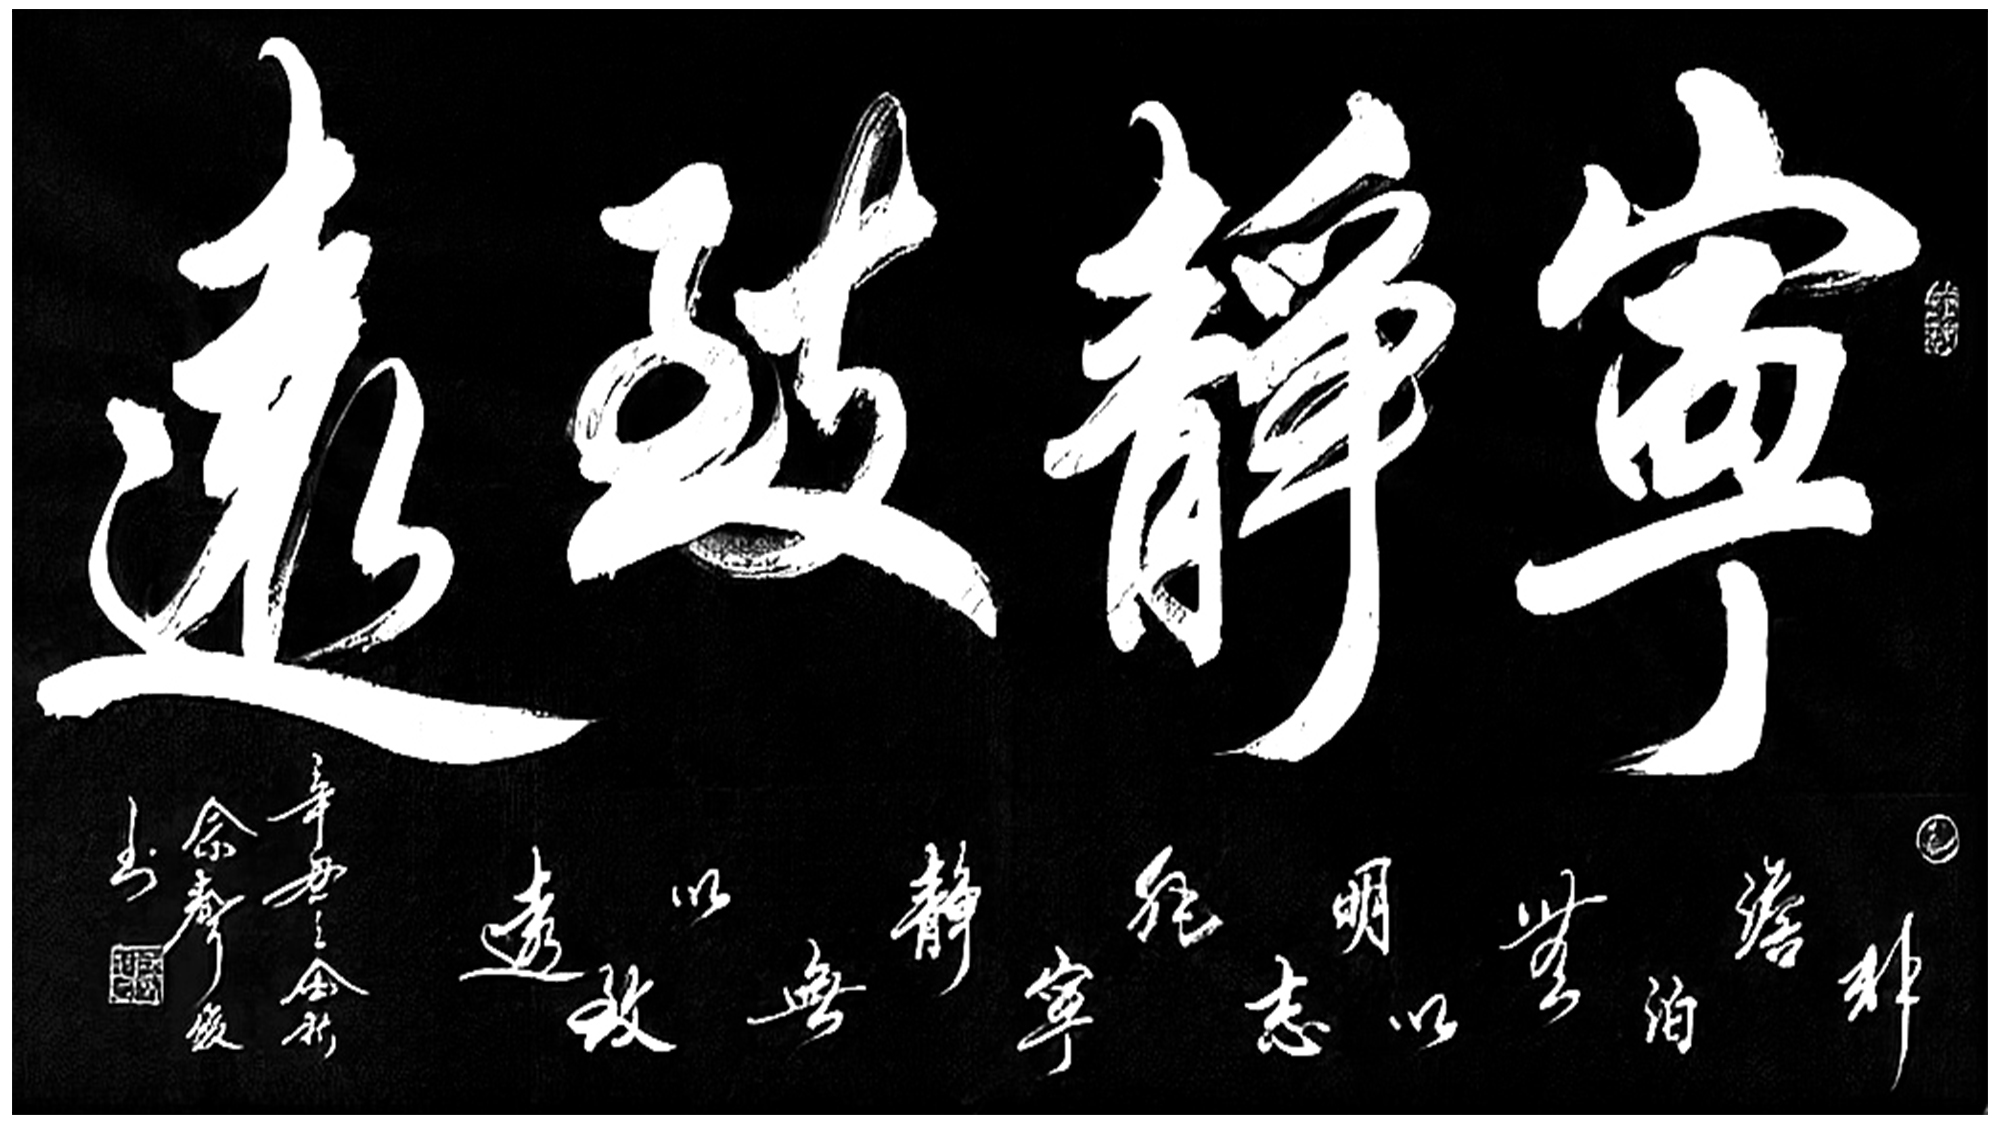 寧靜致遠
非澹泊無以明志非寧靜無以致遠
辛丑之金秋
书